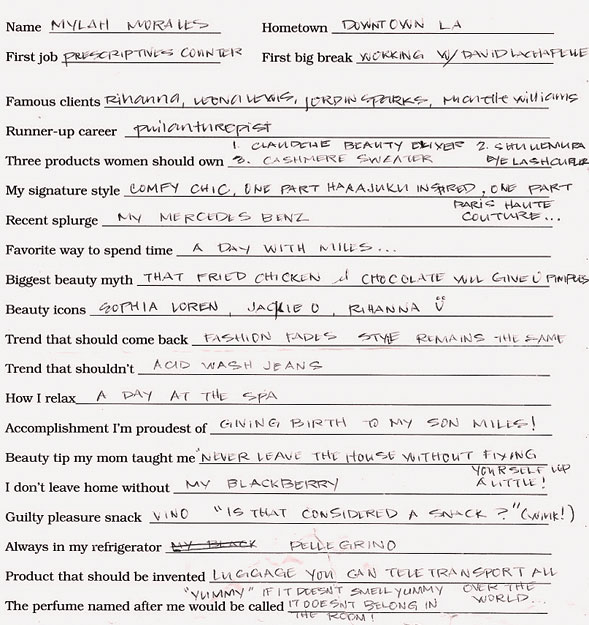 Name MYLAH MORALES Hometown DOWNTOWN LA
First job PRESCRIPTIVES COUNTER First big break WORKING W/ DAVID LACHAPELLE
Famous clients Rihanna, LEONA LEWIS, JORDIN SPARKS, Michelle Williams
Runner-up career philanthropist
1. CLAUDELLE BEAUTY ELIXER 2. SHU UEMURA
Three products women should own 3. CASHMERE SWEATER EYELASH CURLER
My signature style COMFY CHIC, ONE PART HARAJUKU INSPIRED, ONE PART
PARIS HAUTE
Recent splurge MY MERCEDES BENZ COUTURE...
Favorite way to spend time A DAY WITH MILES...
Biggest beauty myth THAT FRIED CHICKEN & CHOCOLATE WILL GIVE U PIMPLES
Beauty icons SOPHIA LOREN, JACKIE O, RIHANNA Ü
Trend that should come back FASHION FADES STYLE REMAINS THE SAME
Trend that shouldn't ACID WASH JEANS
How I relax A DAY AT THE SPA
Accomplishment I'm proudest of GIVING BIRTH TO MY SON MILES!
Beauty tip my mom taught me "NEVER LEAVE THE HOUSE WITHOUT FIXING
YOURSELF UP
I don't leave home without MY BLACKBERRY A LITTLE!
Guilty pleasure snack VINO "IS THAT CONSIDERED A SNACK?" (wink!)
Always in my refrigerator MY BLACK PELLEGRINO
Product that should be invented LUGGAGE YOU CAN TELETRANSPORT ALL
"YUMMY" IF IT DOESN'T SMELL YUMMY OVER THE
The perfume named after me would be called IT DOESN'T BELONG IN WORLD...
THE ROOM!